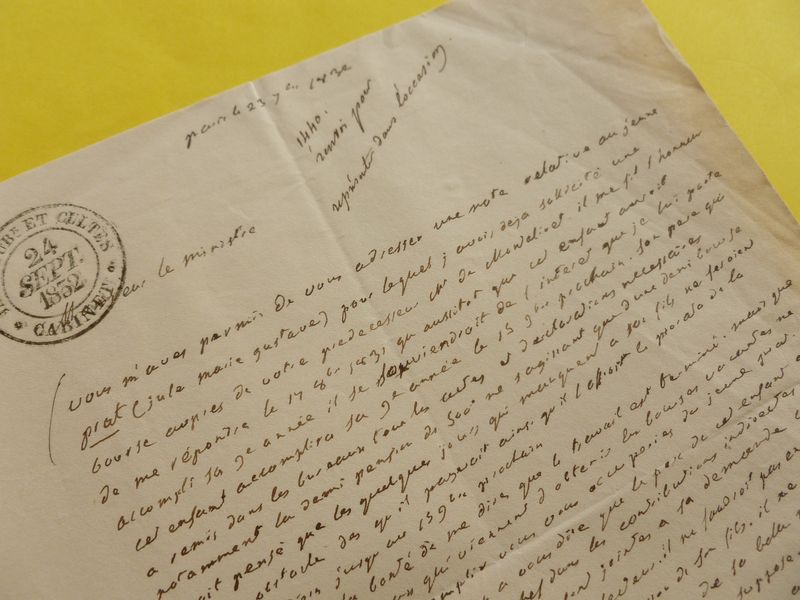 paris le 23 7bre 1832
1440.
renvoi pour
représent dans l'occasion
URE ET CULTES
24
SEPT.
1832
CABINET
eur le ministre
vous m'aves permis de vous adresser une note relative au jeune
prat (jule marie gustave) pour lequel j'avois deja sollicité une
bourse aupres de votre predecesseur Mr de Montalivet. il me fit l'honneur
de me répondre le 17 8bre 1831 qu'aussitot que cet enfant auroit
accompli sa 9e année il se souviendroit de l'interet que je lui porte
cet enfant accomplira sa 9e année le 13 9bre prochain. son pere qui
a remis dans les bureaux tous les actes et declarations nécessaires
notamment la demi pension de 500f ne s'agissant que d'une demi bourse
ait pensé que les quelques jours qui manquent a son fils ne feroient
obstacle des qu'il payeroit ainsi qu'il l'offroit le prorata de la
jusqu'au 13 9bre prochain
la bonté de me dire que le travail est terminé. mais que
qui viennent d'obtenir les bourses vacantes ne
vous vous occuperies du jeune prat.
a vous dire que le pere de cet enfant
dans les contributions indirectes
jointes a sa demande
il ne faudroit pas
de son fils. il ne
de la